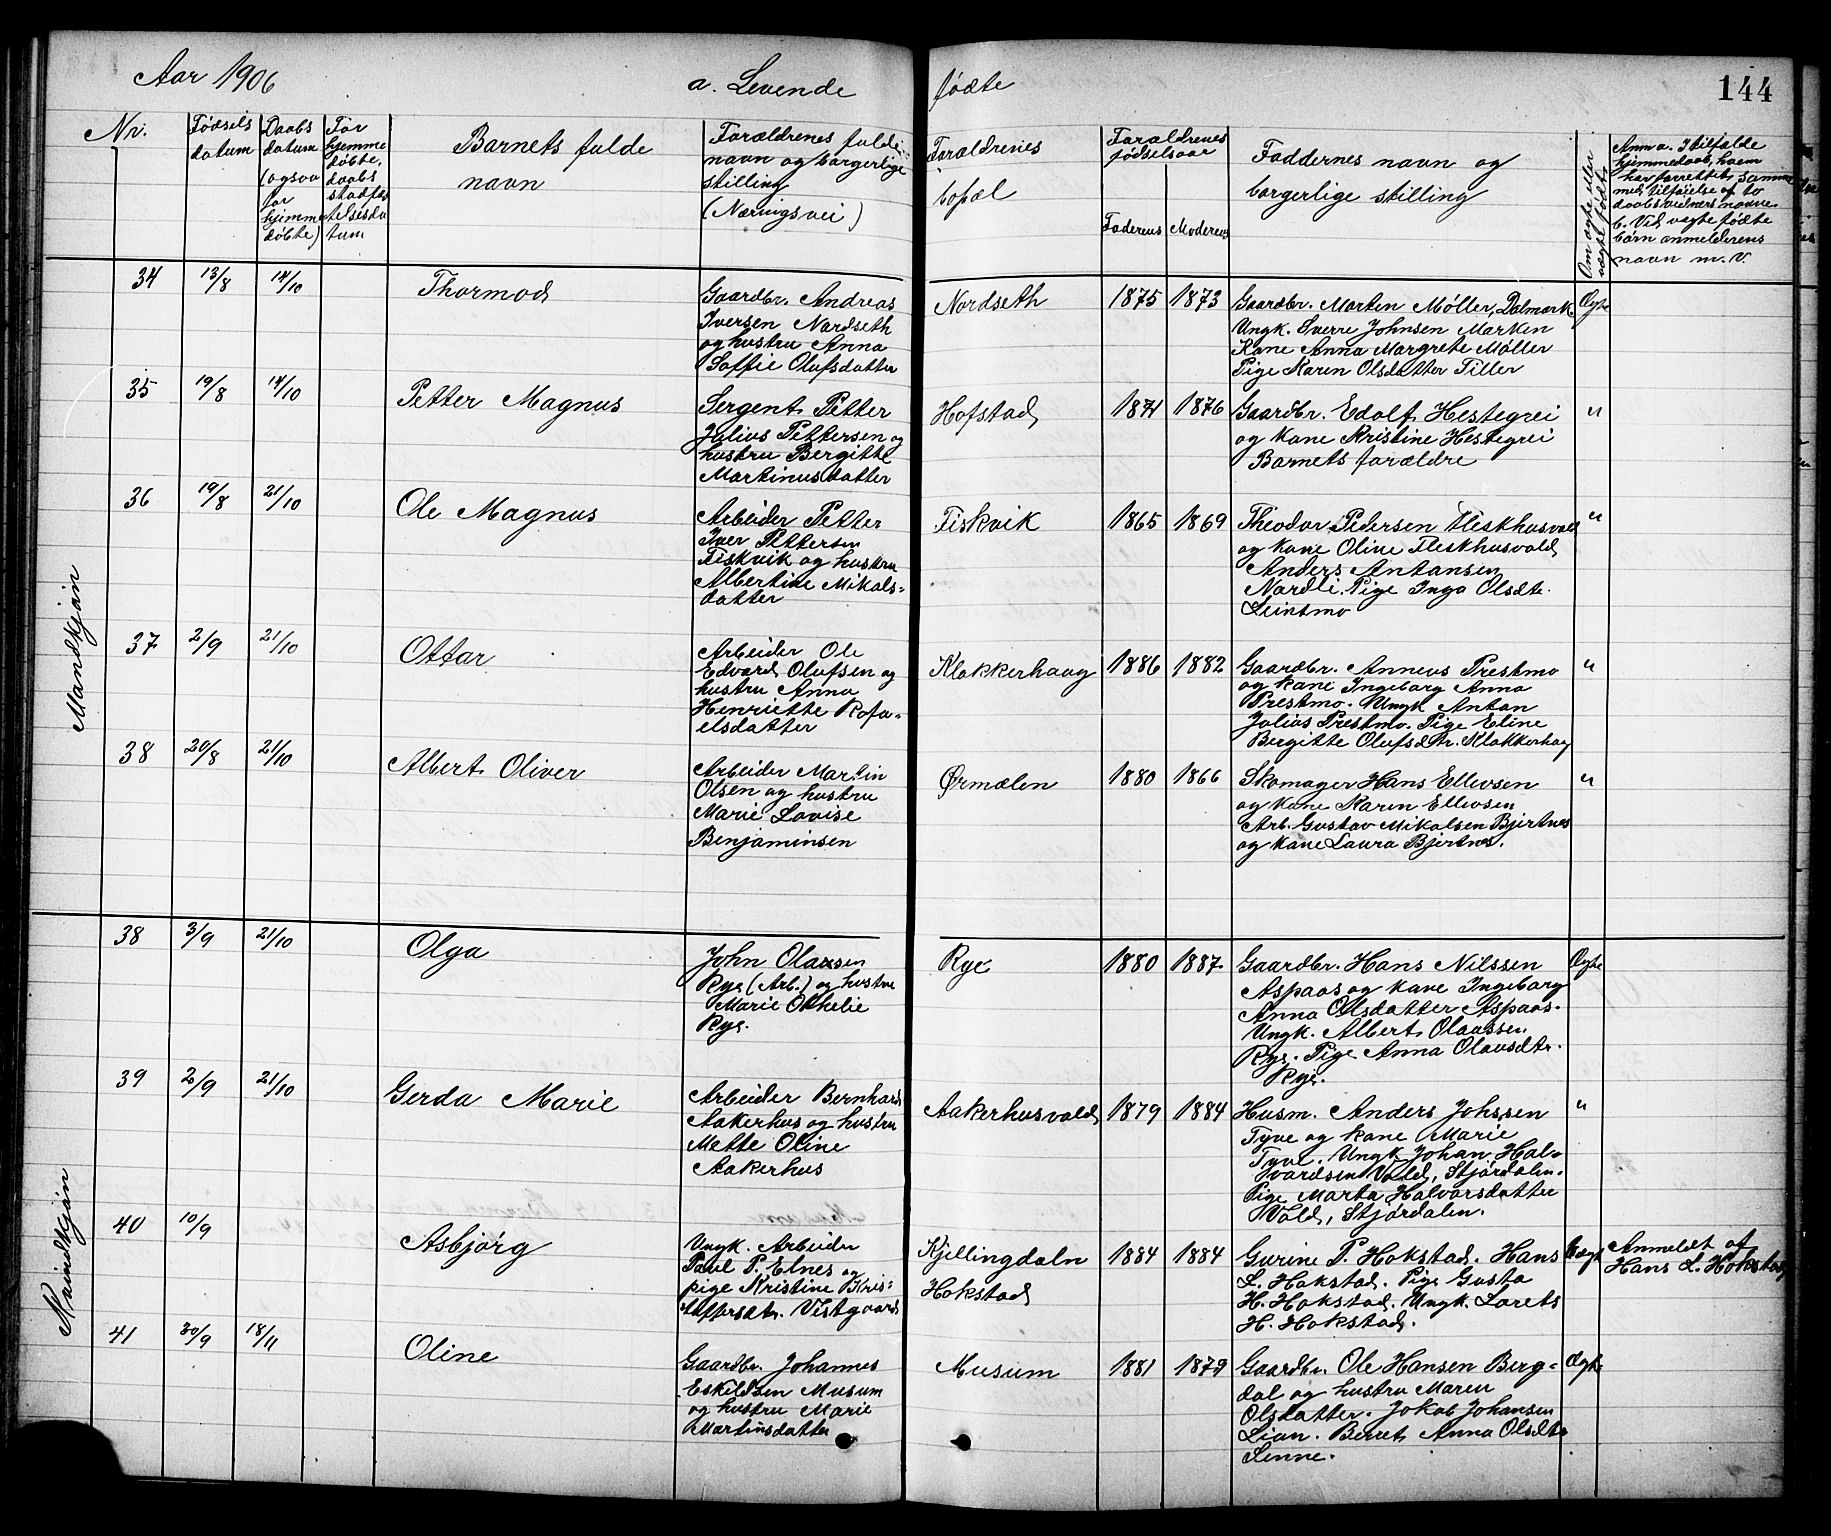 Aar 1906
a. Levende
fødte
144
Nr.
Fødsels
datum
Daabs
datum
(ogsaa
for
hjemme
døbte)
For
hjemme
døbte,
daabs
stadfæs
telsesda
tum
Barnets fulde
navn
Forældrenes fulde
navn og borgerlige
stilling
(Næringsvei)
Forældrenes
bopæl
Forældrenes
fødselsaar
Faderens
Moderens
Faddernes navn og
borgerlige stilling
Om ægte eller
uægte født
Anm a. I tilfælde
hjemmedaab, hvem
har forrettet samme
med tilføielse af to
daabsvidners navne
b. Ved uægte fødte
børn anmelderens
navn m. v.
Mandkjøn
34
13/8
14/10
Thormod
Gaardbr. Andreas
Iversen Nordseth
og hustru Anna
Soffie Olufsdatter
Nordseth
1875
1873
Gaardbr. Morten Møller, Dalmark.
Ungk. Sverre Johnsen Marken
Kone Anna Margrete Møller
Pige Karen Olsdatter Tiller
Ægte
35
19/8
14/10
Petter Magnus
Sergent Petter
Julius Pettersen og
hustru Bergitte
Martinusdatter
Hofstad
1871
1876
Gaardbr. Edolf Hestegrei
og kone Kristine Hestegrei
Barnets forældre
"
36
19/8
21/10
Ole Magnus
Arbeider Petter
Iver Pettersen
Fiskvik og hustru
Albertine Mikals=
datter
Fiskvik
1865
1869
Theodor Pedersen Fleskhusvald
og kone Oline Fleskhusvald
Anders Antonsen
Nordli. Pige Inga Olsdt.
Leintmo
"
37
2/9
21/10
Ottar
Arbeider Ole
Edvard Olufsen og
hustru Anna
Henriette Rafa=
elsdatter
Klokkerhaug
1886
1882
Gaardbr. Anneus Prestmo
og kone Ingeborg Anna
Prestmo. Ungk Anton
Julius Prestmo. Pige Eline
Bergitte Olufsdtr. Klokkerhaug
"
38
20/8
21/10
Albert Oliver
Arbeider Martin
Olsen og hustru
Marie Lovise
Benjaminsen
Ørmælen
1880
1866
Skomager Hans Ellevsen
og kone Karen Ellevsen
Arb. Gustav Mikalsen Bjertnes
og kone Laura Bjertnes.
"
Kvindekjøn
38
3/9
21/10
Olga
John Olausen
Rye (Arb.) og hustru
Marie Othelie
Rye.
Rye
1880
1887
Gaardbr. Hans Nilssen
Aspaas og kone Ingeborg
Anna Olsdatter Aspaas.
Ungk. Albert Olaussen
Rye. Pige Anna Olausdtr.
Rye.
Ægte
39
2/9
21/10
Gerda Marie
Arbeider Bernhard
Aakerhus og hustru
Mette Oline
Aakerhus
Aakerhusvald
1879
1884
Husm. Anders Johssen
Tyve og kone Marie
Tyve. Ungk Johan Hal=
vardsen Vold, Stjørdalen.
Pige Marta Halvorsdatter
Vold, Stjørdalen.
"
40
10/9
Asbjørg
Ungk. Arbeider
Paul P. Elnes og
pige Kristine Kris=
toffersdtr. Vistgaard
Kjellingdaln
Hokstad
1884
1884
Gurine P. Hokstad. Hans
L. Hokstad. Pige Gusta
H. Hokstad. Ungk. Lorets
H. Hokstad.
Uægte
Anmeldt af
Hans L. Hokstad
41
30/9
18/11
Oline
Gaardbr. Johannes
Eskildsen Musum
og hustru Marie
Martinsdatter
Musum
1881
1879
Gaardbr. Ole Hansen Berg=
dal og hustru Maren
Olsdatter. Jokob Johansen
Lian. Berret Anna Olsdtr
Senne.
Ægte